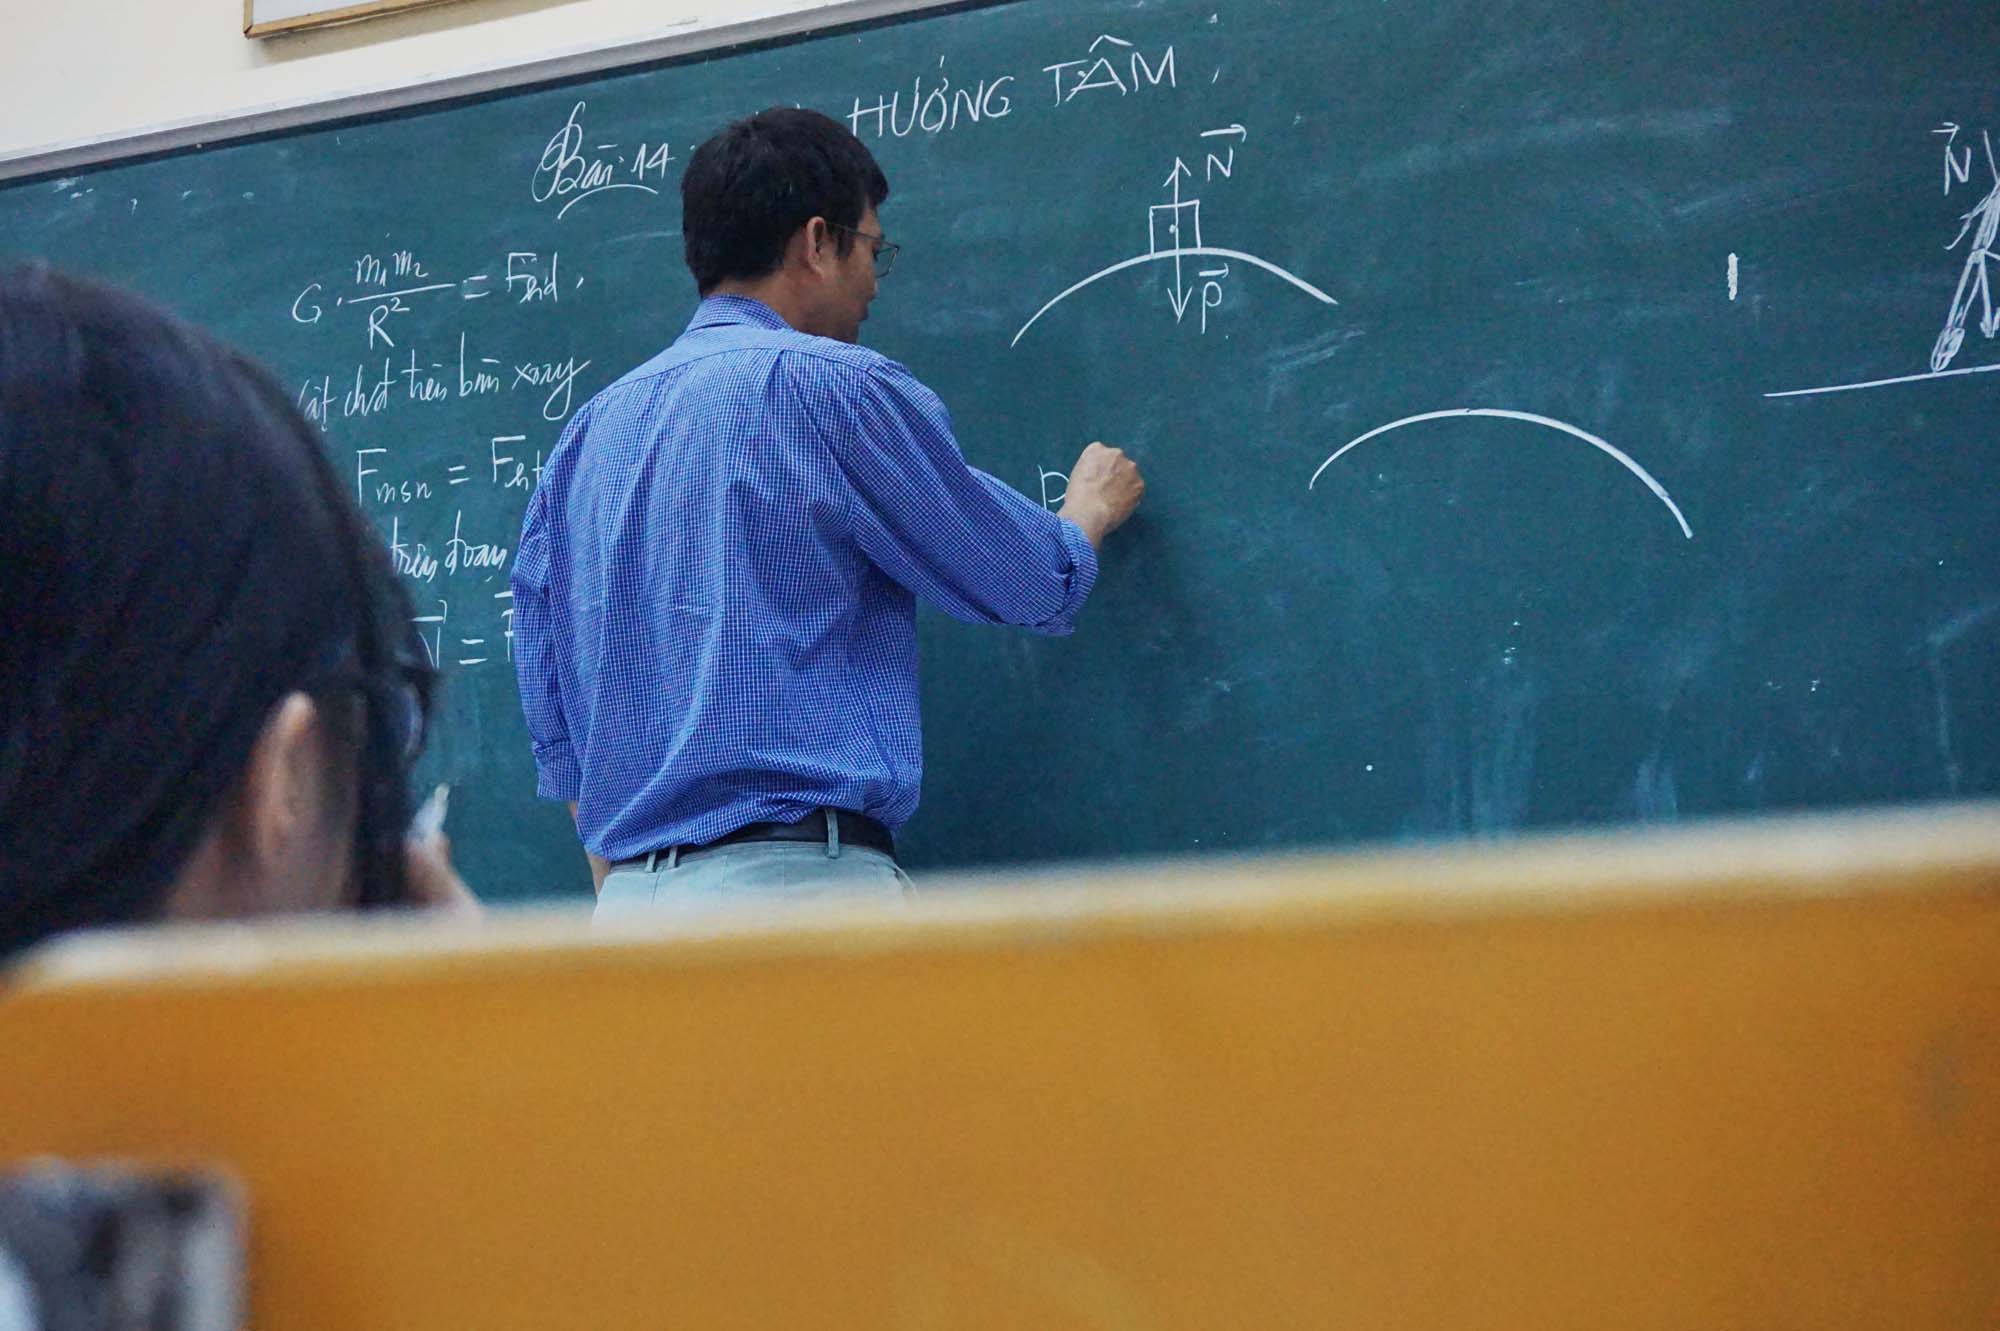 Bài 14: HƯỚNG TÂM
G. m₁m₂ / R² = Fhd.
vật đặt trên bàn xoay
Fmsn = Fht
trên đoạn
N⃗ =
N⃗
P⃗
P
N⃗